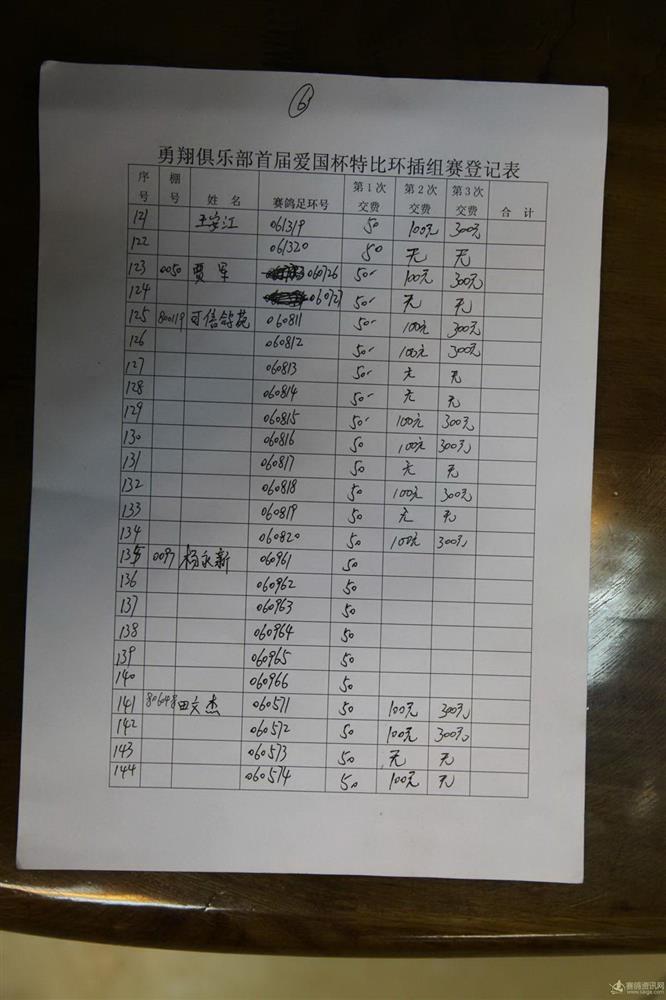 6
勇翔俱乐部首届爱国杯特比环插组赛登记表
序号 棚号 姓 名 赛鸽足环号 第1次交费 第2次交费 第3次交费 合 计
121 王学江 061319 50 100元 300元
122 061320 50 无 无
123 0050 贾军 060726 50 100元 300元
124 060727 50 无 无
125 800119 可信鸽苑 060811 50 100元 300元
126 060812 50 100元 300元
127 060813 50 无 无
128 060814 50 无 无
129 060815 50 100元 300元
130 060816 50 100元 300元
131 060817 50 无 无
132 060818 50 100元 300元
133 060819 50 无 无
134 060820 50 100元 300元
135 0097 杨永新 060961 50
136 060962 50
137 060963 50
138 060964 50
139 060965 50
140 060966 50
141 806048 田文杰 060571 50 100元 300元
142 060572 50 100元 300元
143 060573 50 无 无
144 060574 50 100元 无
赛鸽资讯网
www.saige.com